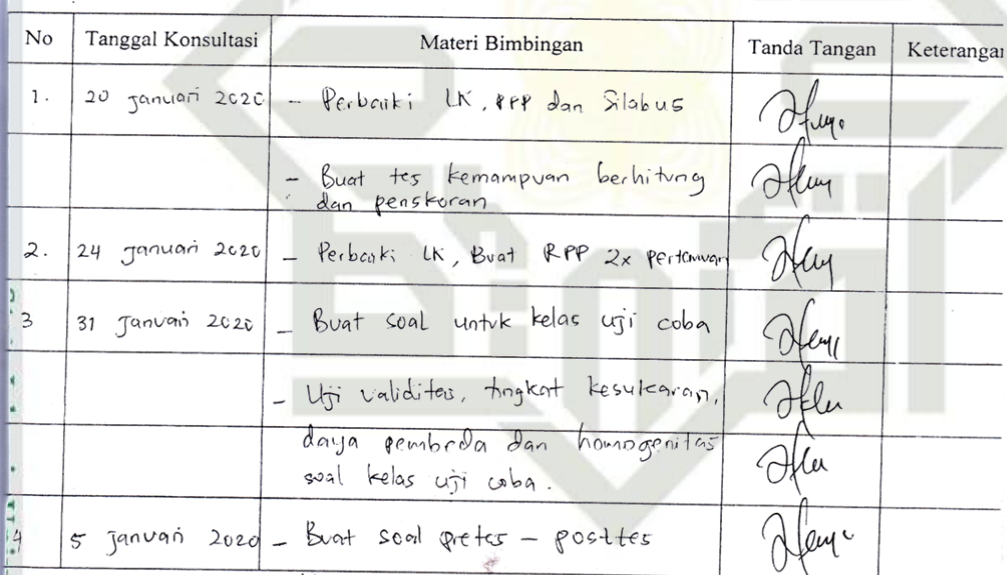 No Tanggal Konsultasi Materi Bimbingan Tanda Tangan Keterangan
1. 20 Januari 2020 - Perbaiki LK, RPP dan Silabus
- Buat tes kemampuan berhitung
dan penskoran
2. 24 Januari 2020 - Perbaiki LK, Buat RPP 2x Pertemuan
3 31 Januari 2020 - Buat soal untuk kelas uji coba
- Uji validitas, tingkat kesukaran,
daya pembeda dan homogenitas
soal kelas uji coba.
4 5 Januari 2020 - Buat soal pretes - posttes